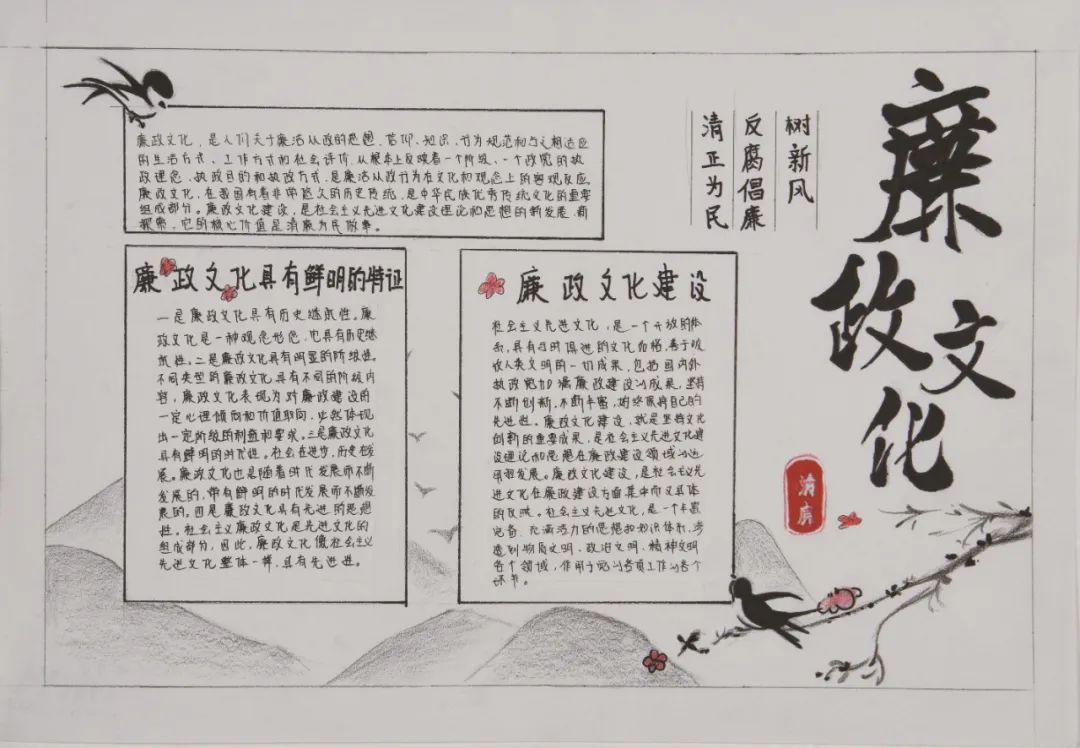 廉政文化
树新风
反腐倡廉
清正为民
清廉
廉政文化，是人们关于廉洁从政的思想、信仰、知识、行为规范和与之相适应
的生活方式、工作方式和社会评价，从根本上反映着一个阶级、一个政党的执
政理念、执政目的和执政方式，是廉洁从政行为在文化和观念上的客观反应。
廉政文化，在我国有着非常悠久的历史传统，是中华民族优秀传统文化的重要
组成部分。廉政文化建设，是社会主义先进文化建设理论和思想的新发展、新
探索，它的核心价值是清廉为民做事。
廉政文化具有鲜明的特证
一是廉政文化具有历史继承性。廉
政文化是一种观念形态，也具有历史继
承性。二是廉政文化具有明显的阶级性。
不同类型的廉政文化具有不同的阶级内
容，廉政文化表现为对廉政建设的
一定心理倾向和价值取向，必然体现
出一定阶级的利益和要求。三是廉政文化
具有鲜明的时代性。社会在进步，历史在发
展。廉政文化也是随着时代发展而不断
发展的，带有鲜明的时代发展而不断发
展的。四是廉政文化具有先进的思想
性。社会主义廉政文化是先进文化的
组成部分，因此，廉政文化像社会主义
先进文化整体一样，具有先进进。
廉政文化建设
社会主义先进文化，是一个开放的体
系，具有与时俱进的文化品格，善于吸
收人类文明的一切成果，包括国内外
执政党加强廉政建设的成果，坚持
不断创新，不断丰富，始终保持自己的
先进性。廉政文化建设，就是坚持文化
创新的重要成果，是社会主义先进文化建
设理论和思想在廉政建设领域的运
用和发展。廉政文化建设，是社会主义先
进文化在廉政建设方面集中而又具体
的反映。社会主义先进文化，是一个丰富
完备、充满活力的思想和知识体系，渗
透到物质文明、政治文明、精神文明
各个领域，作用于党的各项工作的各个
环节。